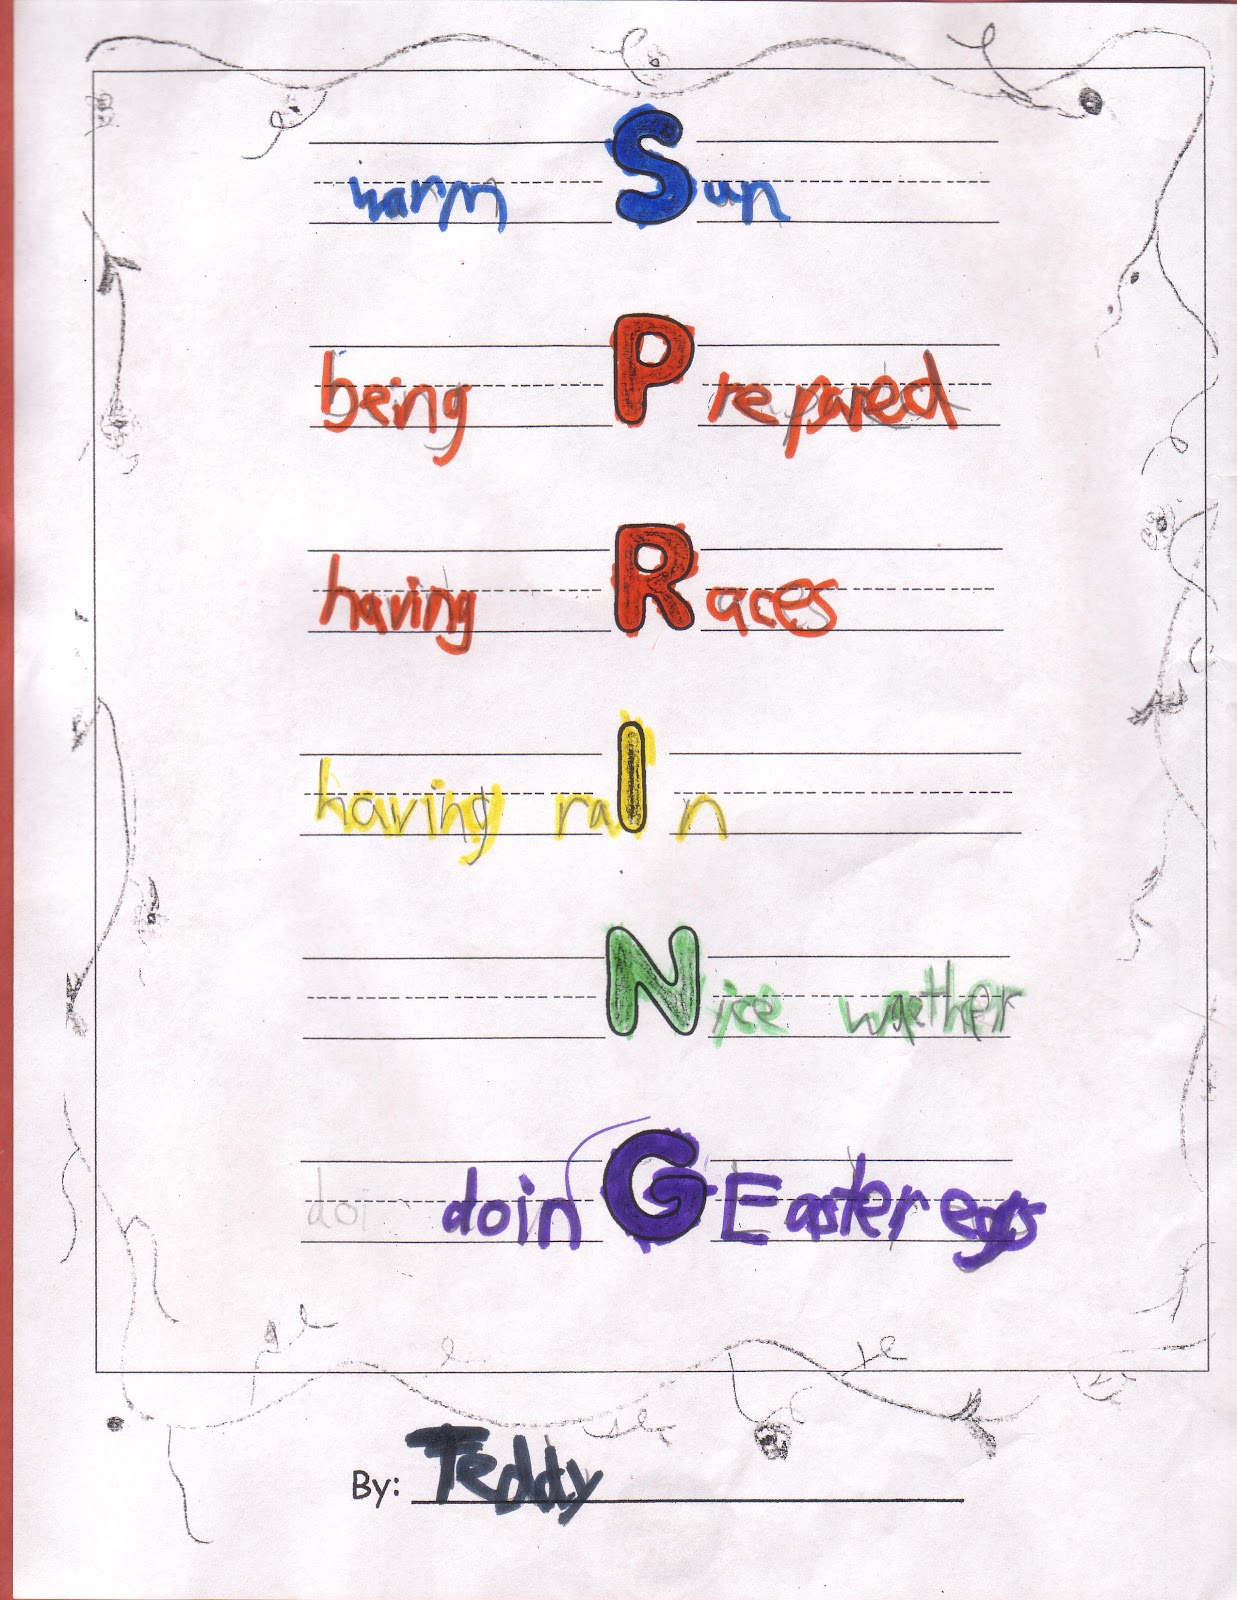 warm Sun
being Prepared
having Races
having raIn
Nice waether
doinG Easter eggs
By: Teddy